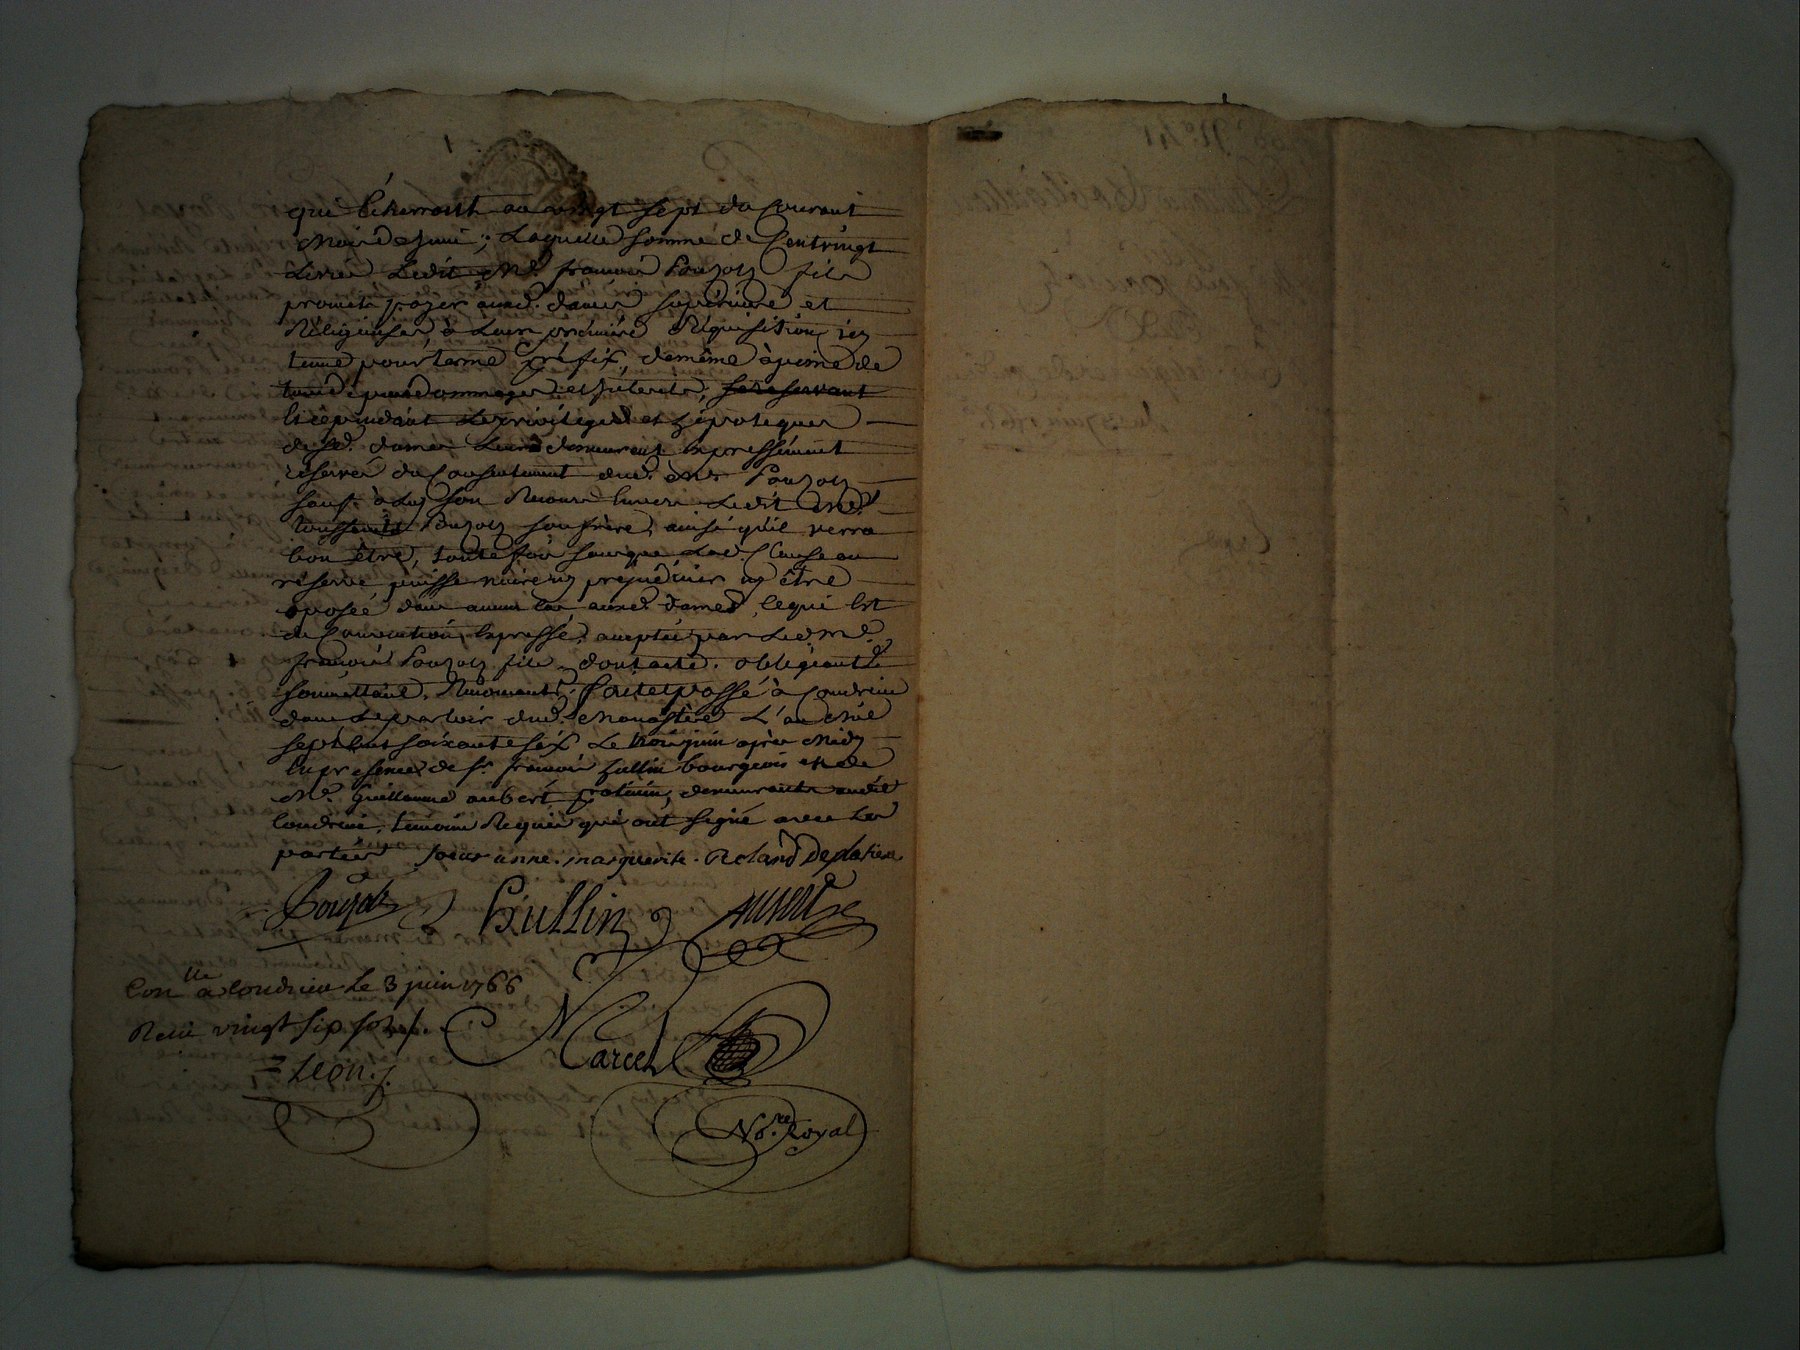 qui Echerront au vingt sept du Courant
Mois de Juin; Laquelle somme de Centvingt
Livres Ledit Me. francois Poujol fils
promet payer auxd. dames superieure et
Religieuses, à Leur premiere Requisition icy
tenue pour terme préfix, demême àpeine de
tous dommages et interets,
les privileges et hipoteques
desd. dames Leurs demeurant Expressément
réservés du Consentement dud. Me. Poujol
sauf à Luy son Recours Envers Ledit Me.
Poujol son frère, ainsi qu'il verra
bon être, toutefois sans que Lad. Clause ou
réserve puisse nuire ny préjudicier ny être
oposée dans aucun cas auxd. dames, ce qui Est
de Convention Expresse, acceptée par Led. Me.
francois Poujol fils dont acte. obligeant
soumettant, Renonçant. fait et passé à Condrieu
dans Le parloir dud. Monastère L'an Mil
sept Cent soixante six Le trois juin après Midy
En presence de sr. francois hullin bourgeois et de
Me. Guillaume aubert praticien, demeurants audit
Condrieu, temoins Requis qui ont signé avec les
parties soeur anne. marguerite. Roland De platiere
Poujol Hullin Aubert
Conlle a Condrieu Le 3 juin 1766
Recu vingt six sols
Marcel
Leon
No.re Royal